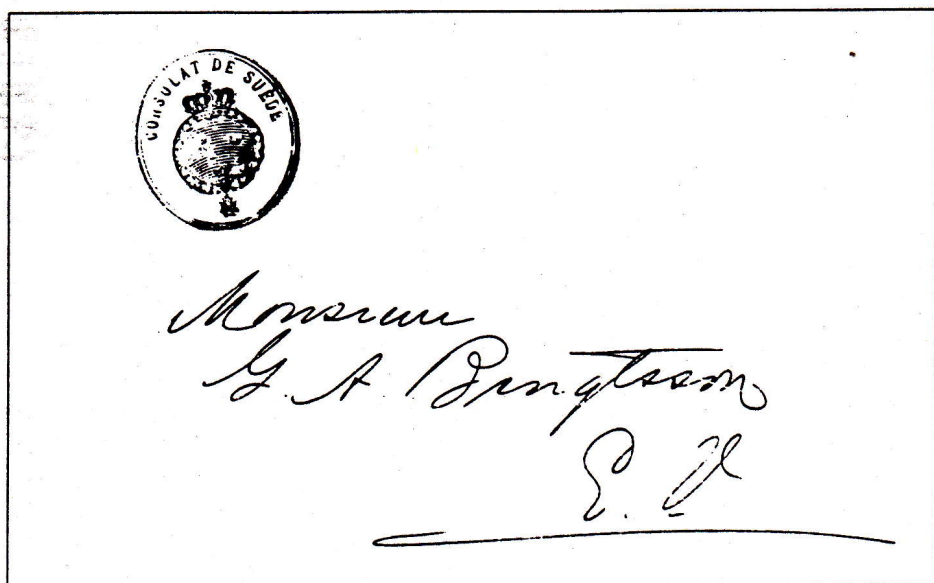 CONSULAT DE SUÈDE
Monsieur
G. A. Bengtsson
E. V